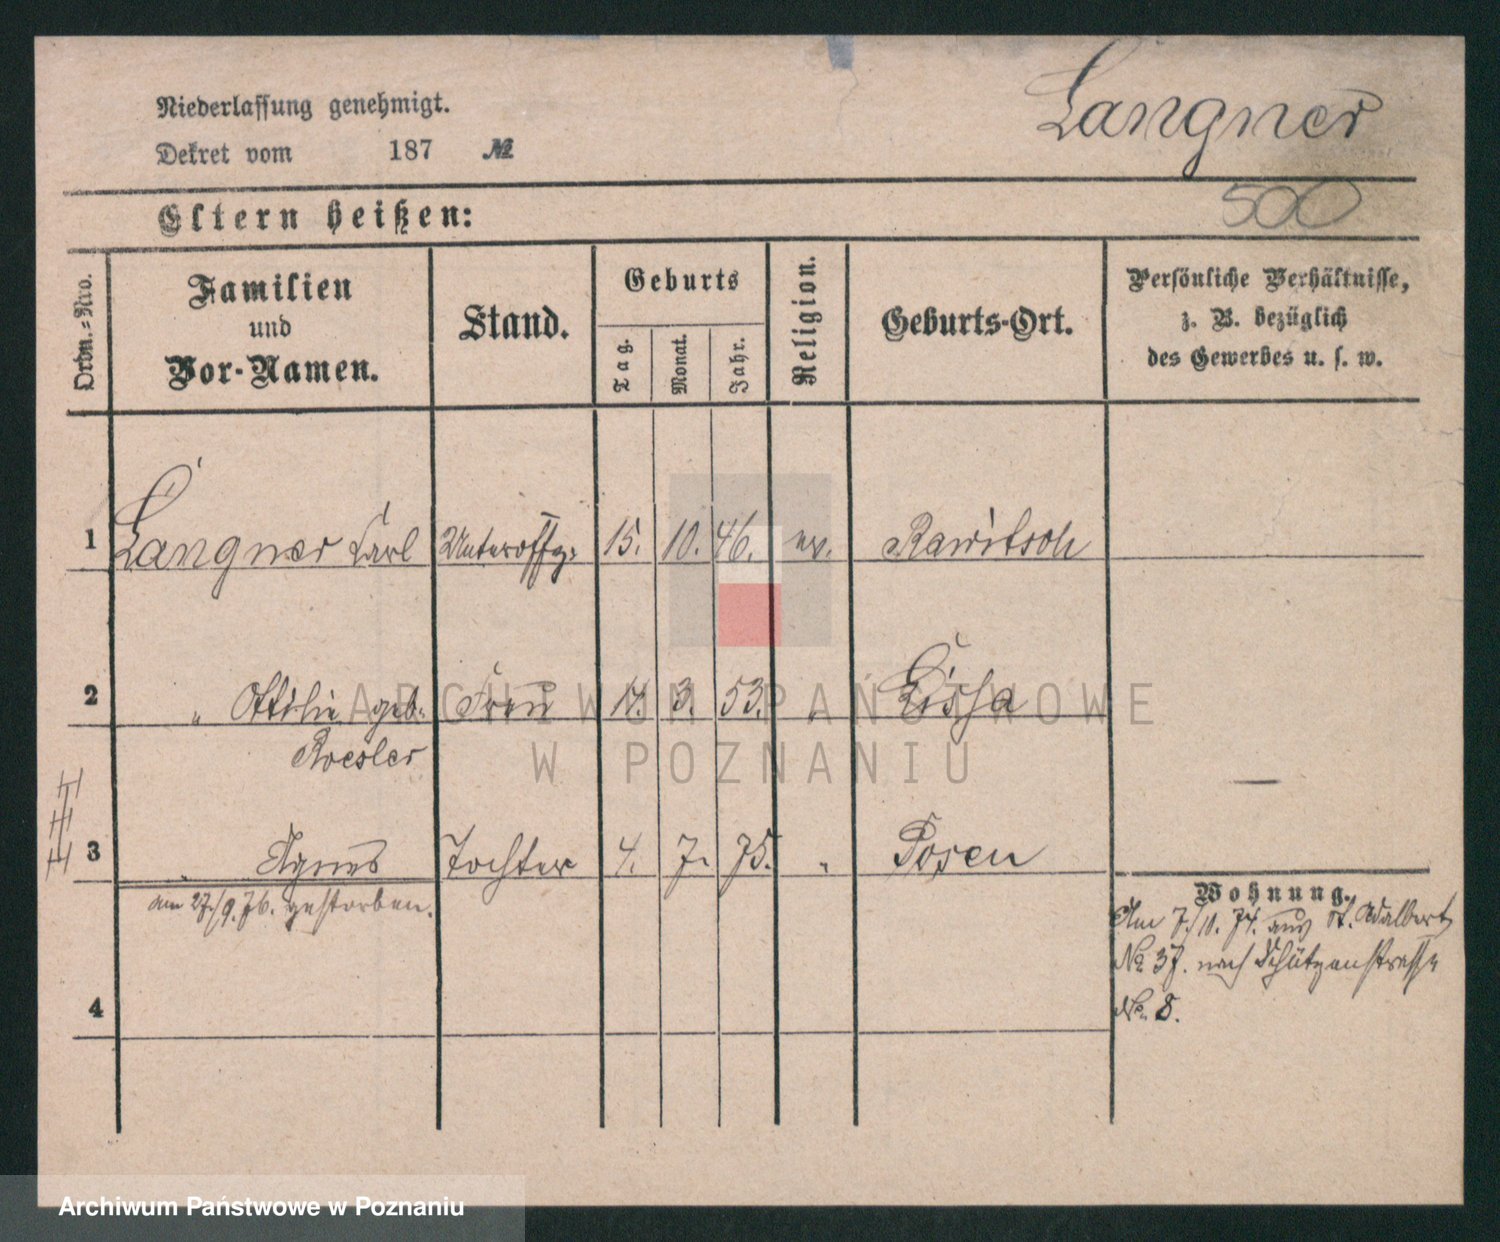 Niederlassung genehmigt.
Langner
Dekret vom 187 №
Eltern heißen:
500
Ordn.-Nro.
Familien
und
Vor-Namen.
Stand.
Geburts
Tag.
Monat.
Jahr.
Religion.
Geburts-Ort.
Persönliche Verhältnisse,
z. B. bezüglich
des Gewerbes u. s. w.
1 Langner Carl Unteroffz. 15. 10. 46. ev. Rawitsch
2 " Ottilie geb. Frau 3. 53. " Lissa
Roesler
3 " Agnes Tochter 4. 7. 75. " Posen
am 27/9. 76. gestorben.
Wohnung.
Am 7/10. 74. aus St. Adalbert
№ 37. nach Schützenstrasse
№ 8.
4
ARCHIWUM PAŃSTWOWE
W POZNANIU
Archiwum Państwowe w Poznaniu